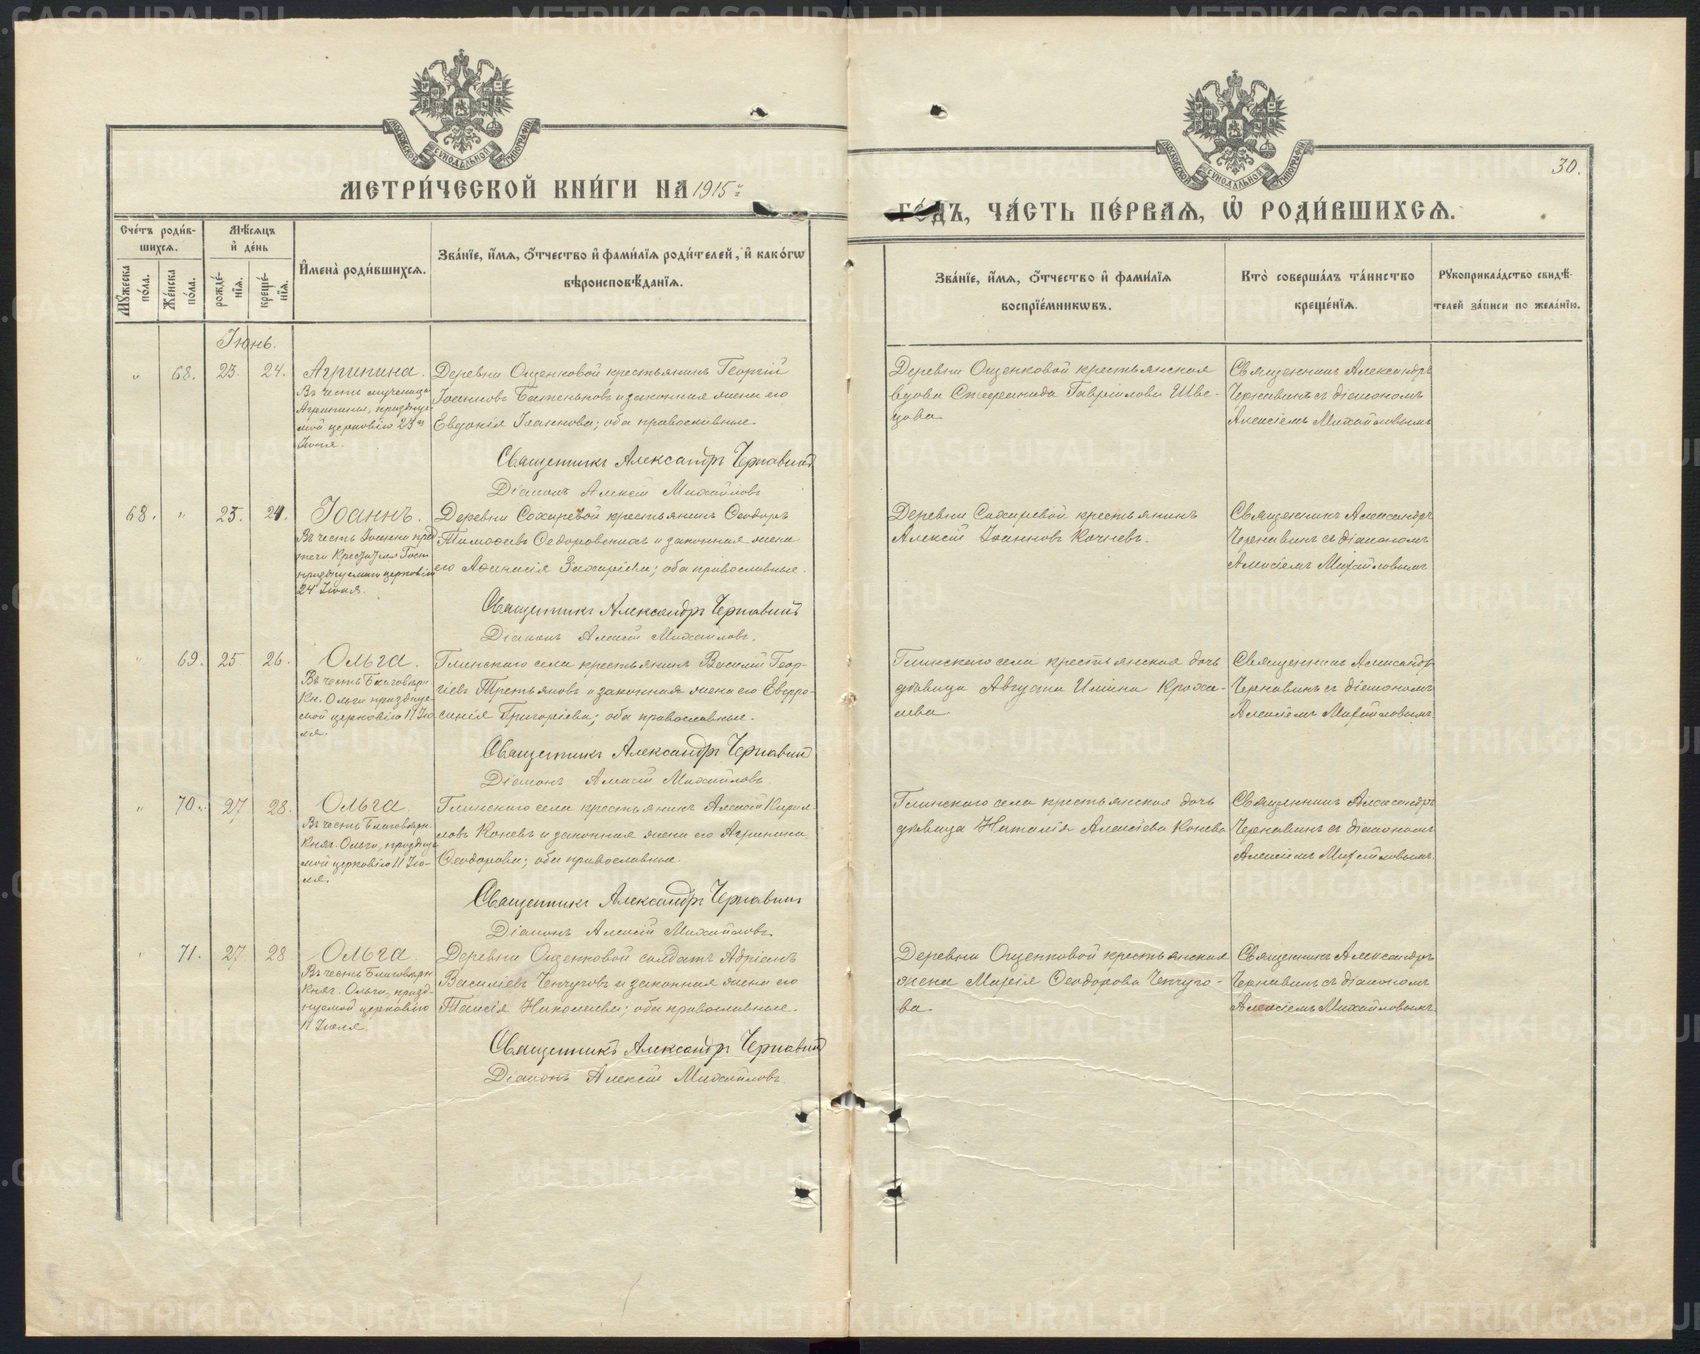 МЕТРИ́ЧЕСКОЙ КНИ́ГИ НА 1915й
ГО́ДЪ, ЧА́СТЬ ПЕ́РВАѦ, Ѡ҆ РОДИ́ВШИХСѦ.
30.
Сче́тъ роди́в-
шихсѧ.
Мꙋ́жеска по́ла.
Же́нска по́ла.
Мѣ́сѧцъ
и҆ де́нь
рожде́-
нїѧ.
креще́-
нїѧ.
И҆мена̀ роди́вшихсѧ.
Зва́нїе, и҆́мѧ, ѻ҆́тчество и҆ фами́лїѧ роди́телей, и҆ како́гѡ
вѣроисповѣ́данїѧ.
Зва́нїе, и҆́мѧ, ѻ҆́тчество и҆ фами́лїѧ
воспрїе́мникѡвъ.
Кто̀ соверша́лъ та́инство
креще́нїѧ.
Рꙋкоприкла́дство свидѣ́-
телей за́писи по жела́нїю.
Іюнь.
" 68. 23. 24. Агрипина.
Въ честь мученицы
Агрипины, празднуе-
мой церковію 23го
Іюня.
Деревни Ощепковой крестьянинъ Георгій
Іоанновъ Батеньковъ и законная жена его
Евдокія Іоаннова; оба православные.
Священникъ Александръ Чернавинъ
Діаконъ Алексій Михайловъ
Деревни Ощепковой крестьянская
вдова Стефанида Гавріилова Шве-
цова.
Священникъ Александръ
Чернавинъ съ діакономъ
Алексіемъ Михайловымъ
68. " 23. 24. Іоаннъ.
Въ честь Іоанна пред
течи Крестителя Госп.
празднуемаго церковію
24 Іюня.
Деревни Сохаревой крестьянинъ Ѳеодоръ
Тимоѳеевъ Ѳедоровскихъ и законная жена
его Аѳанасія Захаріева; оба православные.
Священникъ Александръ Чернавинъ
Діаконъ Алексій Михайловъ.
Деревни Сохаревой крестьянинъ
Алексій Іоанновъ Кочневъ.
Священникъ Александръ
Чернавинъ съ діакономъ
Алексіемъ Михайловымъ
" 69. 25 26. Ольга.
Въ честь Благовѣрн.
Кн. Ольги празднуе-
мой церковію 11 Ію-
ля.
Глинскаго села крестьянинъ Василій Геор-
гіевъ Третьяковъ и законная жена его Евфро-
синія Григоріева; оба православные.
Священникъ Александръ Чернавинъ
Діаконъ Алексій Михайловъ.
Глинскаго села крестьянская дочь
дѣвица Августа Ильина Кроха-
лева.
Священникъ Александръ
Чернавинъ съ діакономъ
Алексіемъ Михайловымъ
" 70. 27 28. Ольга.
Въ честь Благовѣрн.
Княг. Ольги, празднуе
мой церковію 11 Ію-
ля.
Глинскаго села крестьянинъ Алексій Кирил-
ловъ Коневъ и законная жена его Агрипина
Ѳеодорова; оба православные.
Священникъ Александръ Чернавинъ
Діаконъ Алексій Михайловъ.
Глинскаго села крестьянская дочь
дѣвица Наталія Алексіева Конева
Священникъ Александръ
Чернавинъ съ діакономъ
Алексіемъ Михайловымъ.
" 71. 27 28 Ольга.
Въ честь Благовѣрн
Княг. Ольги, празд-
нуемой церковію
11 Іюля
Деревни Ощепковой солдатъ Адріанъ
Василіевъ Чепчуговъ и законная жена его
Таисія Николаева; оба православные.
Священникъ Александръ Чернавинъ
Діаконъ Алексій Михайловъ.
Деревни Ощепковой крестьянская
жена Марія Ѳеодорова Чепчуго-
ва.
Священникъ Александръ
Чернавинъ съ діакономъ
Алексіемъ Михайловымъ